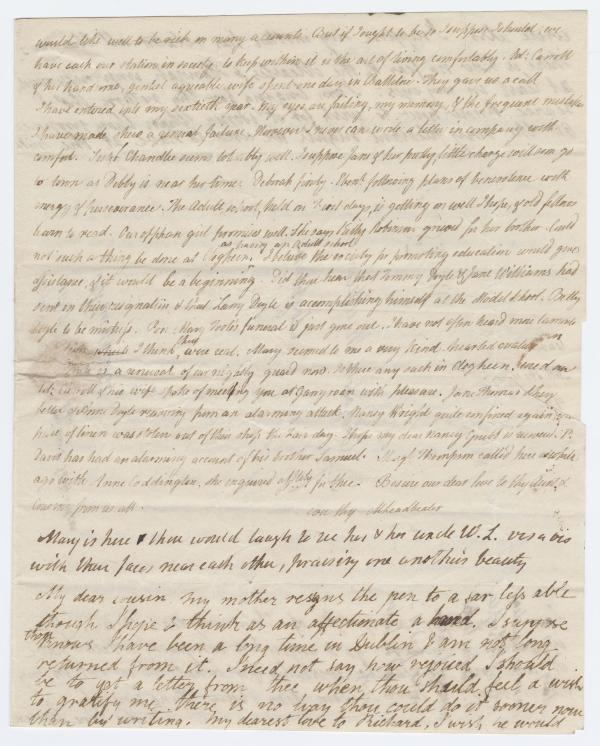 would like well to be rich on many accounts. But if I ought to be so I suppose I should, we
have each our station in society & to keep within it is the art of living comfortably. Wm. Carroll
& his handsome, genteel agreeable wife spent one day in Ballitore. They gave us a call
I have entered into my sixtieth year. My eyes are failing, my memory, & the frequent mistakes
I have made shew a general failure. Moreover I now can write a letter in company with
comfort. Chandlee seems tolerably well. I suppose Jane & her pretty little charge will soon go
to town as Debby is near her time. Deborah following plans of benevolence with
energy & perseverance. The Adult school, held on days, is getting on well I hope, & old fellows
learn to read. Our orphan girl promises well. She says Cathy Robinson grieved for her brother. Could
not such a thing be done at Clogheen, as having an Adult school I believe the society for promoting education would give
assistance, & it would be a beginning. Did thou hear that Tommy Doyle & Jane Williams had
sent in their resignation & that Larry Doyle is accomplishing himself at the Model School. Betty
Doyle to be mistress. Poor Mary Toole's funeral is just gone out. I have not often heard more lament
I think they were real. Mary seemed to me a very kind-hearted creature
is a renewal of our nightly guard now. Is there any such in Clogheen.
Carroll & his wife spoke of meeting you at Garryroan with pleasure. Jane Thomas
better & Anne Doyle recovering from an alarming attack. Nancy Wright quite confined again
piece of linen was stolen out of their shop the fair day. I hope my dear Nancy Grubb is P.
Davis has had an alarming account of his brother Samuel. Thompson called here awhile
ago with Anne Coddington, she enquired affly for thee. Be sure our dear love to thy Aunt &
from us all. thy MLeadbeater
Mary is here & thou would laugh to see her & her uncle W. L. vis a vis
with their faces near each other, praising one another's beauty
My dear cousin my mother resigns the pen to a far less able
though I hope & think as an affectionate a hand, I suppose
thou knows I have been a long time in Dublin & am not long
returned from it. I need not say how rejoiced I should
be to get a letter from thee when thou should feel a wish
to gratify me there is no way thou could do it sooner now
than by writing. my dearest love to Richard, I wish he would